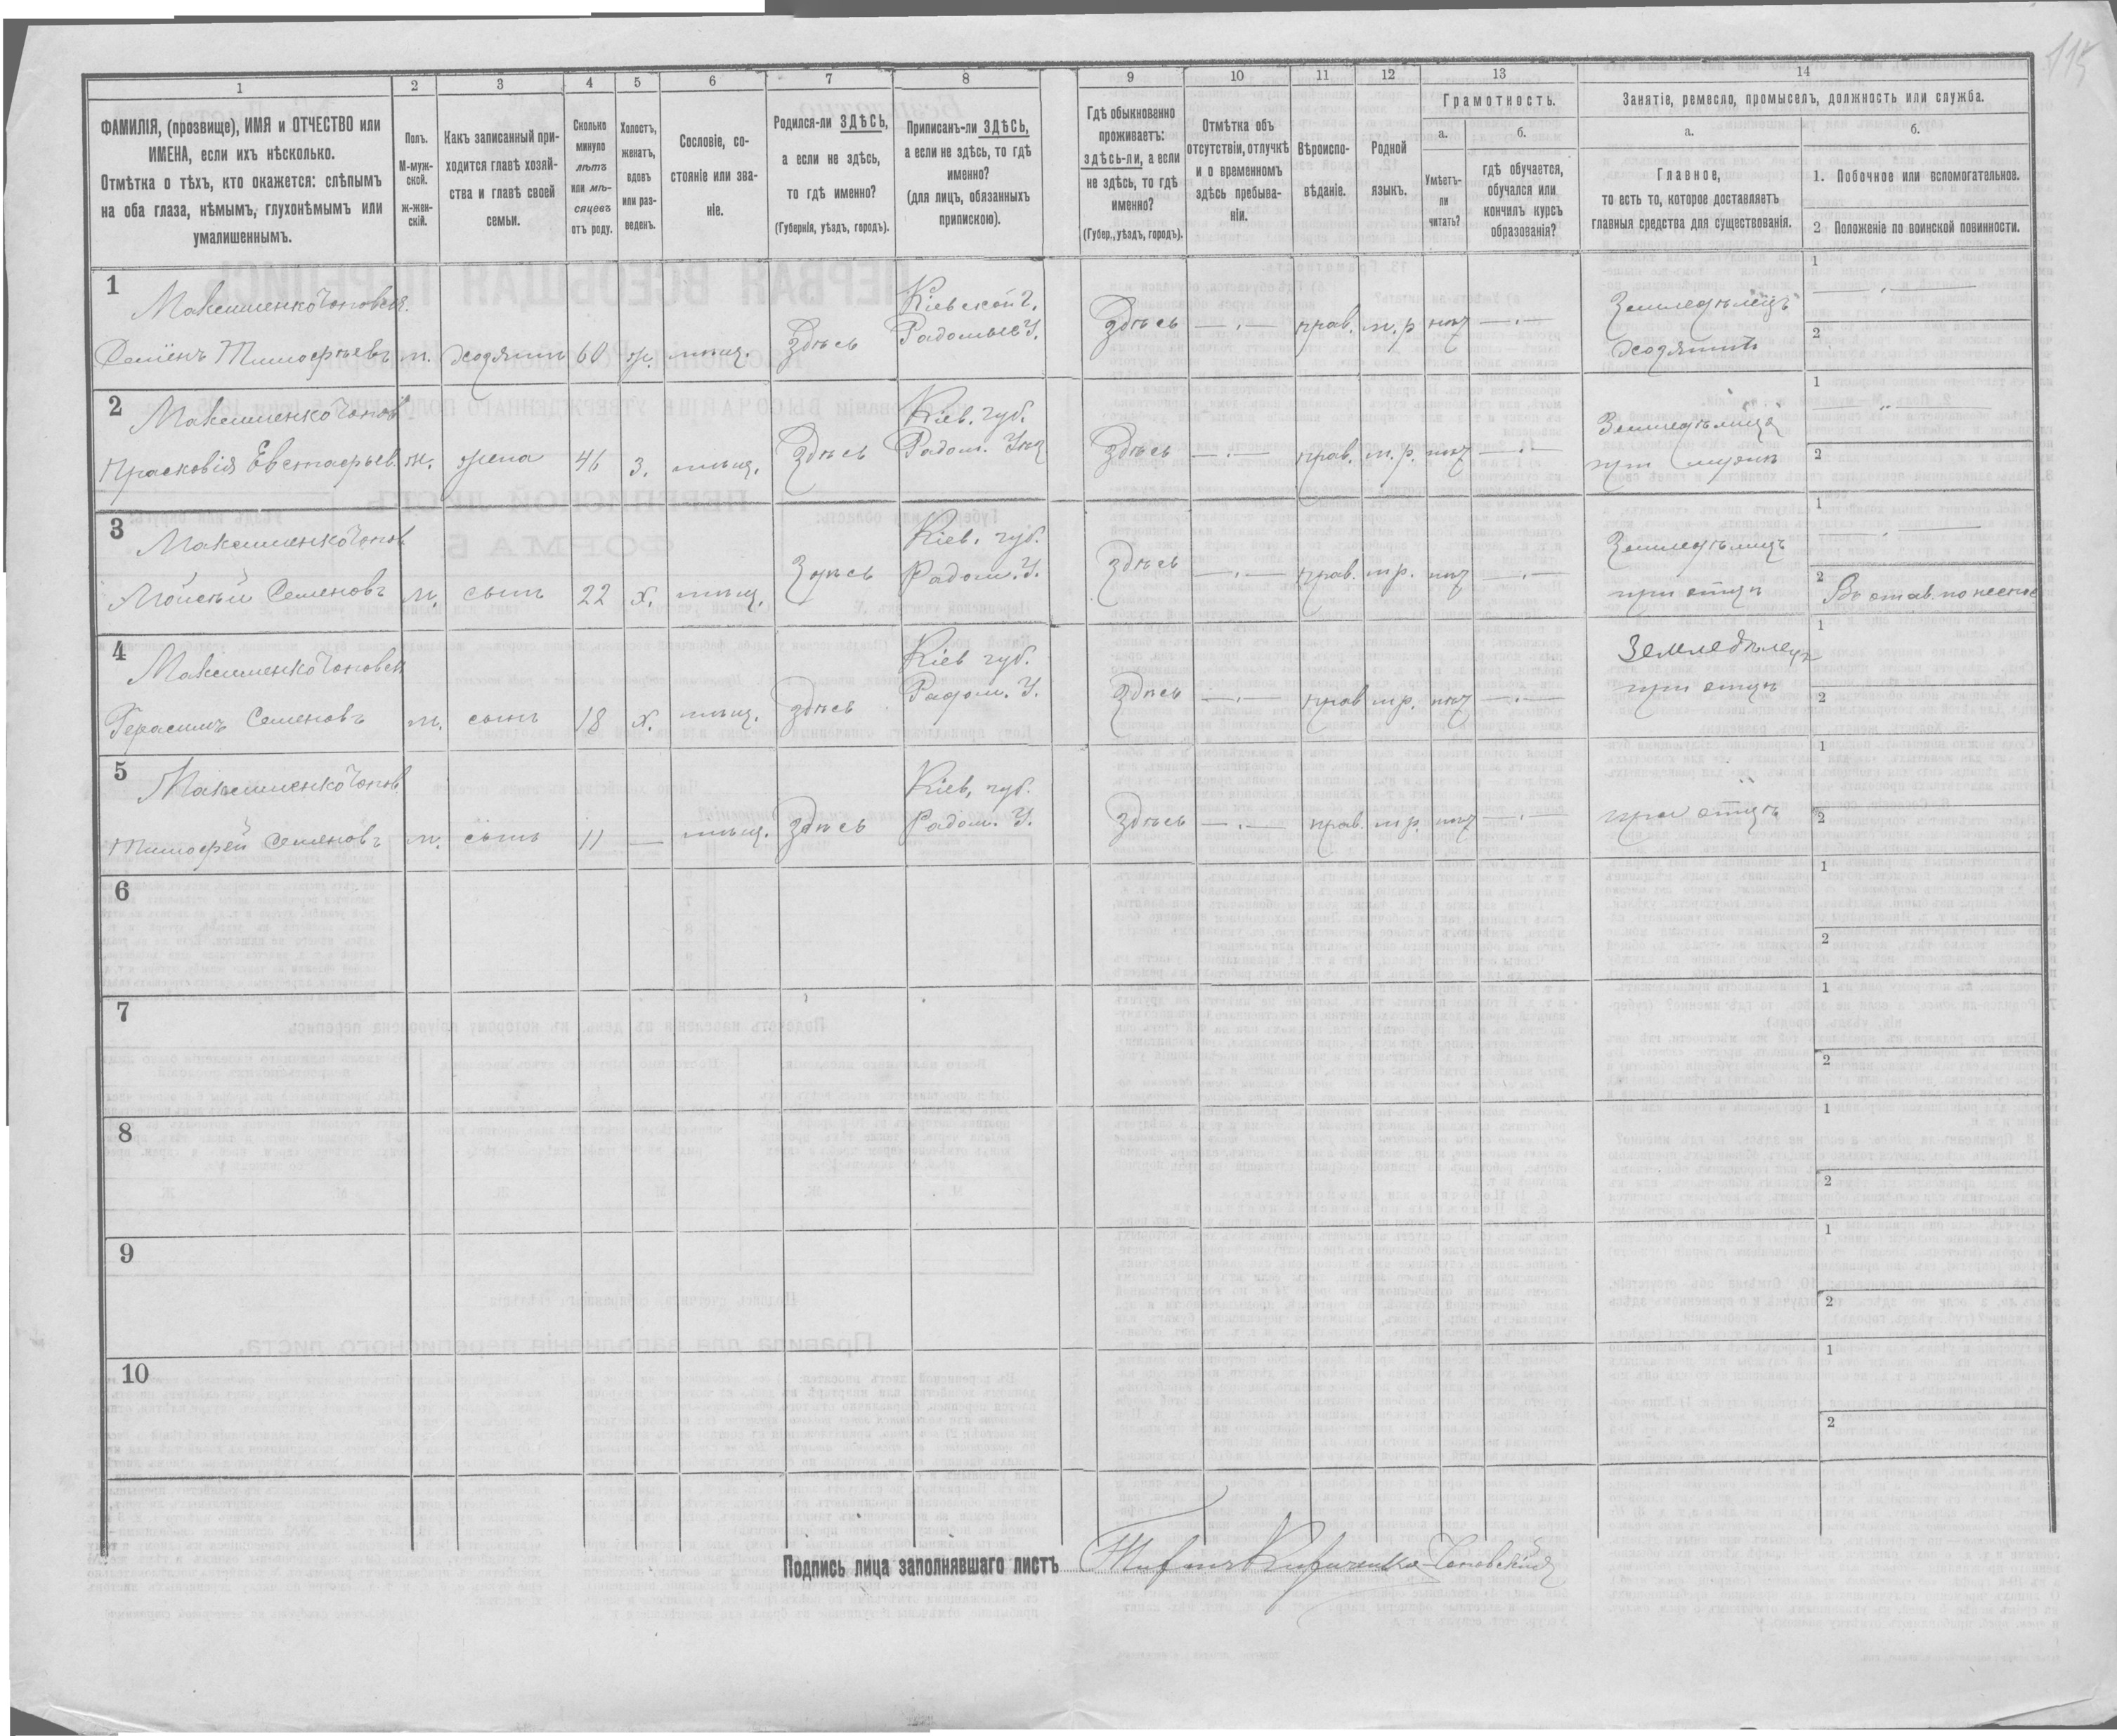 115
1 2 3 4 5 6 7 8 9 10 11 12 13 14
ФАМИЛІЯ, (прозвище), ИМЯ и ОТЧЕСТВО или
ИМЕНА, если ихъ нѣсколько.
Отмѣтка о тѣхъ, кто окажется: слѣпымъ
на оба глаза, нѣмымъ, глухонѣмымъ или
умалишеннымъ.
Полъ.
М-муж-
ской.
ж-жен-
скій.
Какъ записанный при-
ходится главѣ хозяй-
ства и главѣ своей
семьи.
Сколько
минуло
лѣтъ
или мѣ-
сяцевъ
отъ роду.
Холостъ,
женатъ,
вдовъ
или раз-
веденъ.
Сословіе, со-
стояніе или зва-
ніе.
Родился-ли ЗДѢСЬ,
а если не здѣсь,
то гдѣ именно?
(Губернія, уѣздъ, городъ).
Приписанъ-ли ЗДѢСЬ,
а если не здѣсь, то гдѣ
именно?
(для лицъ, обязанныхъ
припискою).
Гдѣ обыкновенно
проживаетъ:
здѣсь-ли, а если
не здѣсь, то гдѣ
именно?
(Губер., уѣздъ, городъ).
Отмѣтка объ
отсутствіи, отлучкѣ
и о временномъ
здѣсь пребыва-
ніи.
Вѣроиспо-
вѣданіе.
Родной
языкъ.
Грамотность.
а.
Умѣетъ-
ли
читать?
б.
гдѣ обучается,
обучался или
кончилъ курсъ
образованія?
Занятіе, ремесло, промыселъ, должность или служба.
а.
Главное,
то есть то, которое доставляетъ
главныя средства для существованія.
б.
1. Побочное или вспомогательное.
2 Положеніе по воинской повинности.
1
Максименко Чоповск.
Семенъ Тимофѣевъ м. хозяинъ 60 ж. мѣщ. Здѣсь
Кіевской г.
Радомыс У.
Здѣсь — . — прав. м.р нѣт — . —
Земледѣлецъ
хозяинъ
1
2
2
Максименко Чопов
Прасковія Евстафьев. ж. жена 46 з. мѣщ. Здѣсь
Кіев. губ.
Радом. Уѣз
Здѣсь — . — прав. м.р. нѣт — . —
Земледѣлица
при мужѣ
1
2
3
Максименко Чопов
Мойсѣй Семеновъ м. сынъ 22 х. мѣщ. Здѣсь
Кіев. губ.
Радом. У.
Здѣсь — . — прав. м.р. нѣт — . —
Земледѣлецъ
при отцѣ
1
2
4
Максименко Чоповск
Герасимъ Семеновъ м. сынъ 18 х. мѣщ. Здѣсь
Кіев губ.
Радом. У.
Здѣсь — . — прав м.р. нѣт — . —
Земледѣлецъ
при отцѣ
1
2
5
Максименко Чопов.
Тимофей Семеновъ м. сынъ 11 — мѣщ. Здѣсь
Кіев. губ.
Радом. У.
Здѣсь — . — прав. м.р. нѣт — . —
при отцѣ
1
2
6
1
2
7
1
2
8
1
2
9
1
2
10
1
2
Подпись лица заполнявшаго листъ